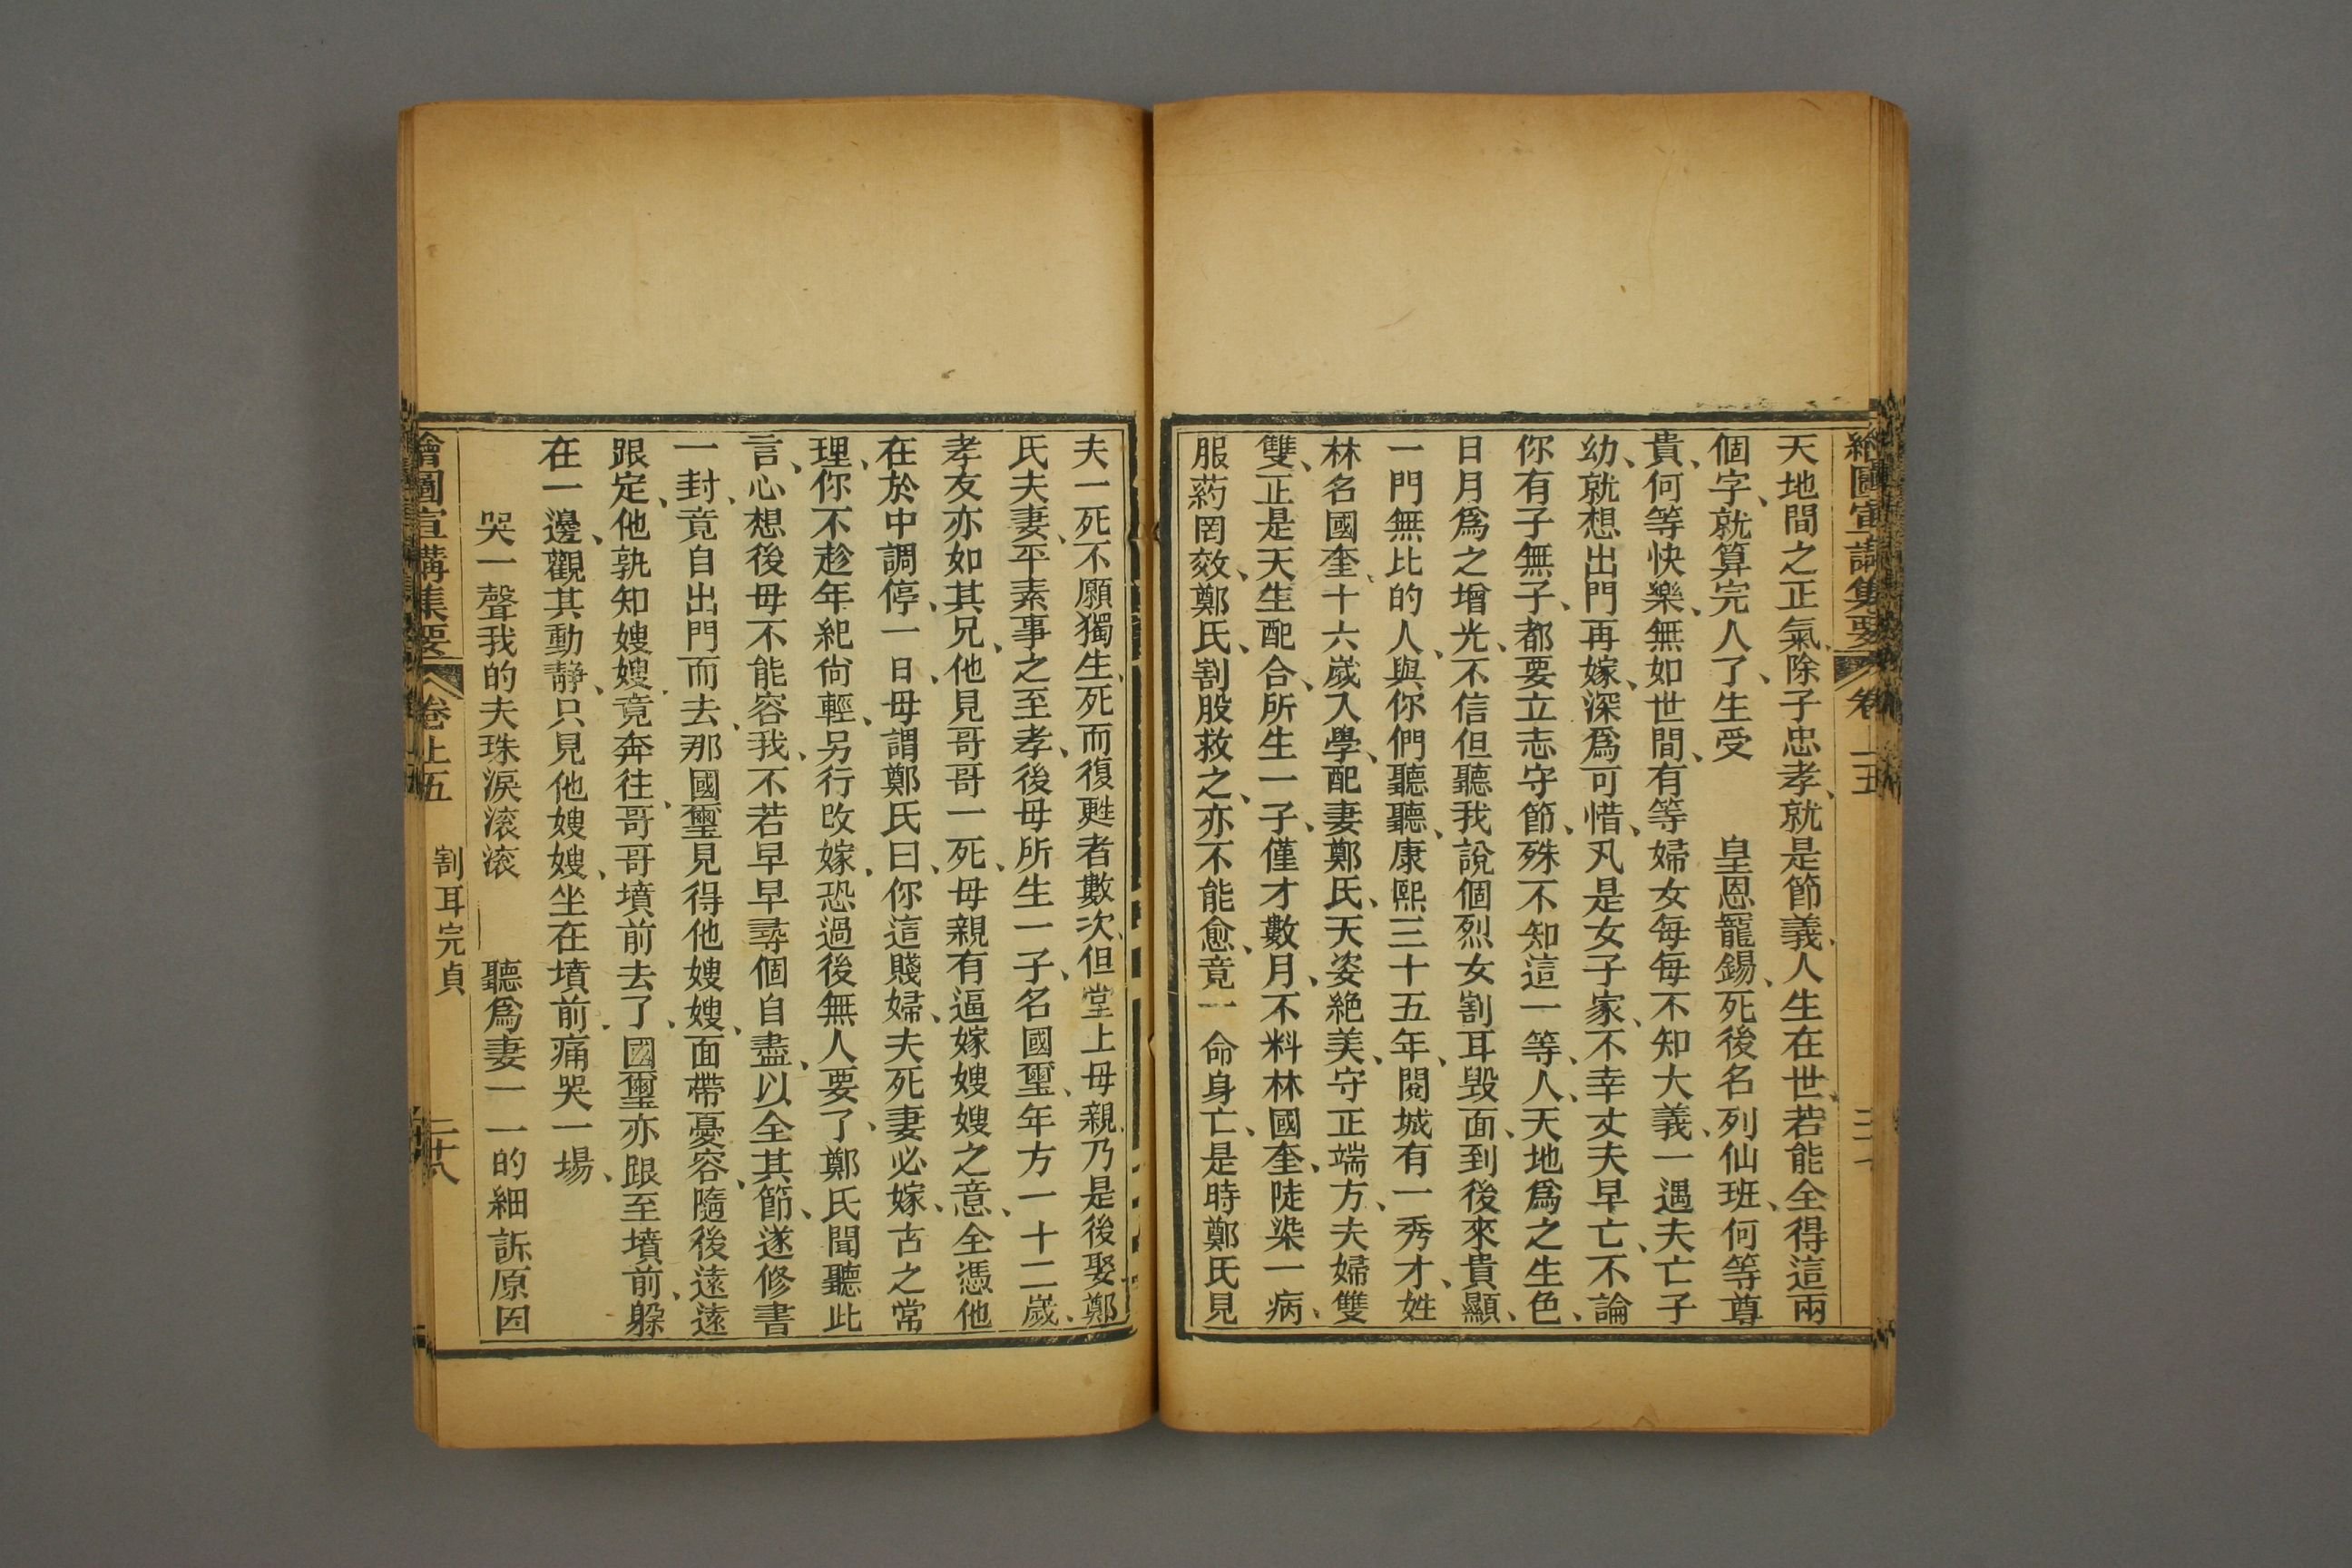 天地間之正氣、除子忠孝、就是節義、人生在世、若能全得這兩
個字、就算完人了、生受 皇恩寵錫、死後名列仙班、何等尊
貴、何等快樂、無如世間、有等婦女每每不知大義、一遇夫亡子
幼、就想出門再嫁、深爲可惜、凡是女子家、不幸丈夫早亡、不論
你有子無子、都要立志守節、殊不知這一等、人、天地爲之生色、
日月爲之增光、不信但聽我說個烈女割耳毀面、到後來貴顯、
一門無比的人、與你們聽聽、康熙三十五年、閱城有一秀才、姓
林名國奎、十六歲入學、配妻鄭氏、天姿絕美、守正端方、夫婦雙
雙、正是天生配合、所生一子、僅才數月、不料林國奎、陡染一病、
服葯罔效、鄭氏、割股救之、亦不能愈、竟一命身亡、是時鄭氏見
夫一死、不願獨生、死而復甦者數次、但堂上母親、乃是後娶、鄭
氏夫妻、平素事之至孝、後母所生一子、名國璽、年方一十二歲、
孝友亦如其兄、他見哥哥一死、母親有逼嫁嫂嫂之意、全憑他
在於中調停、一日、母謂鄭氏曰、你這賤婦、夫死妻必嫁、古之常
理、你不趁年紀尙輕、另行改嫁、恐過後無人要了、鄭氏聞聽此
言、心想後母不能容我、不若早早尋個自盡、以全其節、遂修書
一封、竟自出門而去、那國璽見得他嫂嫂、面帶憂容、隨後遠遠
跟定、他孰知嫂嫂、竟奔往、哥哥墳前去了、國璽亦跟至墳前、躱
在一邊、觀其動靜、只見他嫂嫂、坐在墳前、痛哭一場、
哭一聲我的夫珠淚滚滚 聽爲妻一一的細訴原因
繪圖宣講集要 卷上五 割耳完貞 二十八